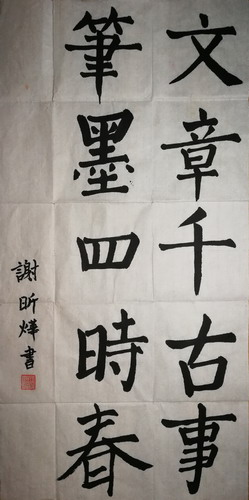 文章千古事
筆墨四時春
謝昕燁書